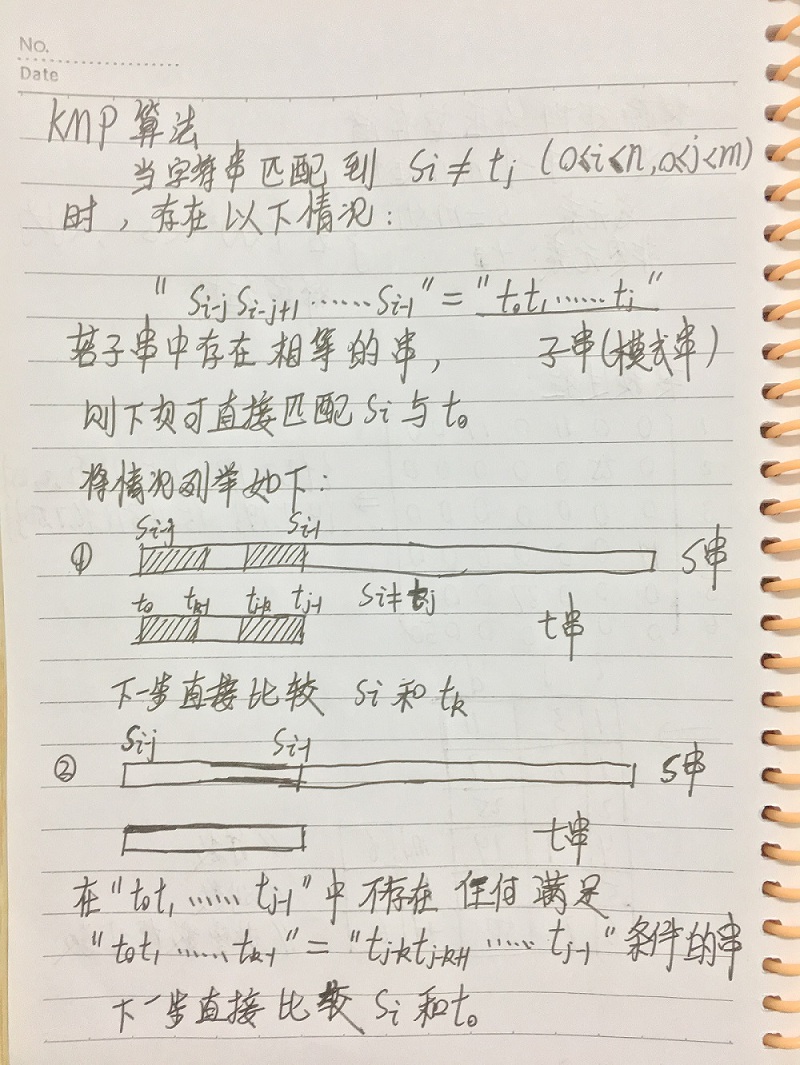 No.
Date
KMP 算法
当字符串匹配到 Si ≠ tj (0≤i<n,0≤j<m)
时，存在以下情况：
"Si-j Si-j+1 …… Si-1" = "t0t1 …… tj"
若子串中存在相等的串，　子串(模式串)
则下次可直接匹配 Si 与 t0
将情况列举如下：
Si-j Si-1
① S串
t0 tk-1 tj-k tj-1 Si≠tj
t串
下一步直接比较 Si 和 tk
Si-j Si-1
② S串
t串
在"t0t1 …… tj-1"中不存在任何满足
"t0t1 …… tk-1" = "tj-ktj-k+1 …… tj-1"条件的串
下一步直接比较 Si 和 t0